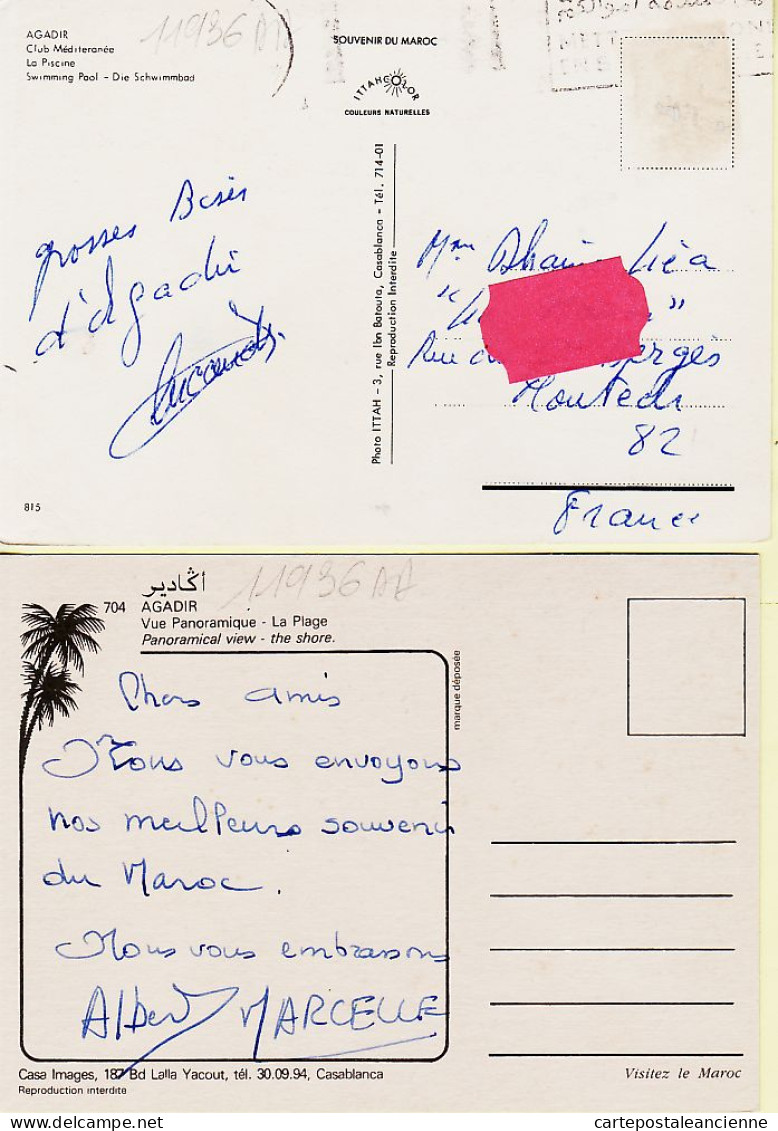 AGADIR
Club Méditeranée
La Piscine
Swimming Pool - Die Schwimmbad
11936
SOUVENIR DU MAROC
ITTAHCOLOR
COULEURS NATURELLES
grosses Bises
d'Agadir
Photo ITTAH - 3, rue Ibn Batouta, Casablanca - Tél. 714-01
Reproduction Interdite
Mme Léa
Rue
82
France
815
11936
أڭادير
704 AGADIR
Vue Panoramique - La Plage
Panoramical view - the shore.
marque déposée
Chers amis
Nous vous envoyons
nos meilleurs souvenir
du Maroc.
Nous vous embrassons
Albert MARCELLE
Casa Images, 187 Bd Lalla Yacout, tél. 30.09.94, Casablanca
Reproduction interdite
Visitez le Maroc
cartepostaleancienne